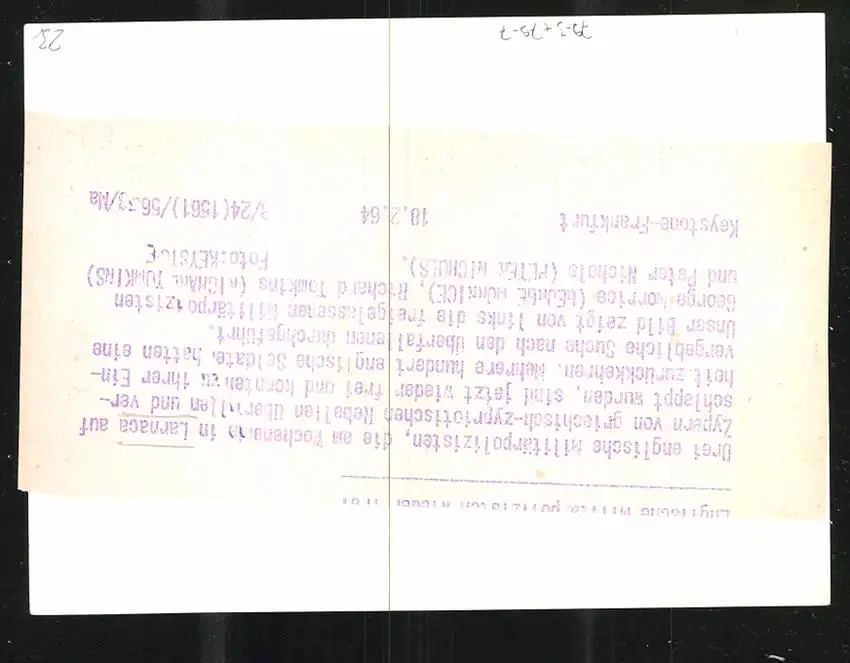 Englische Militärpolizisten wieder frei
Drei englische Militärpolizisten, die am Wochenende in Larnaca auf
Zypern von griechisch-zypriotischen Rebellen überfallen und ver-
schleppt wurden, sind jetzt wieder frei und konnten zu ihrer Ein-
heit zurückkehren. Mehrere hundert englische Soldate. hatten eine
vergebliche Suche nach den überfallenen durchgeführt.
Unser Bild zeigt von links die freigelassenen Militärpolizisten
George Morrice (GEORGE MORRICE), Richard Tomkins (RICHARD TOMKINS)
und Peter Nichols (PETER NICHOLS).
Foto:KEYSTONE
Keystone-Frankfurt 18.2.64 3/24(1561)/5633/Ma
79-3+79-7
23